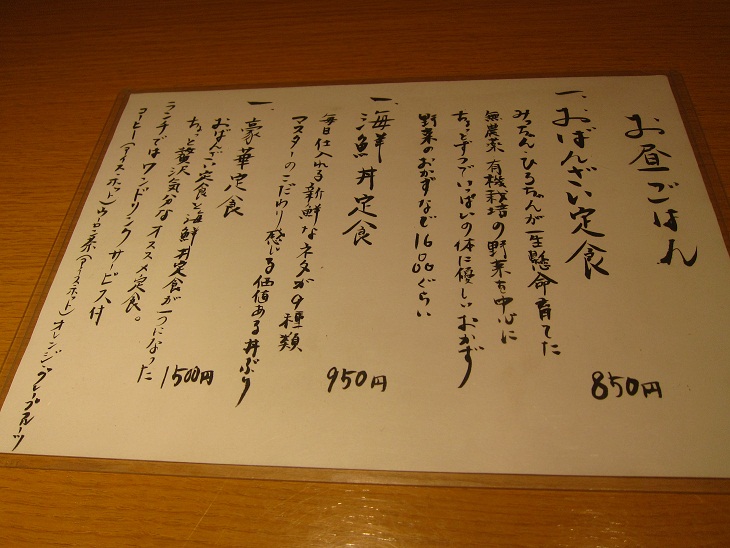 お昼ごはん
一、おばんざい定食
みっちゃん・ひろちゃんが一生懸命育てた
無農薬 有機栽培の野菜を中心に
ちょっとずつでいっぱいの体に優しいおかず
野菜のおかずなど16コぐらい
850円
一、海鮮丼定食
毎日仕入れる新鮮なネタが9種類
マスターのこだわり感じる価値ある丼ぶり
950円
一、豪華定食
おばんざい定食と海鮮丼定食が一つになった
ちょっと贅沢気分なオススメ定食。
1500円
ランチではワンドリンクサービス付
コーヒー(アイス・ホット)ウーロン茶(アイス・ホット)オレンジ・グレープフルーツ